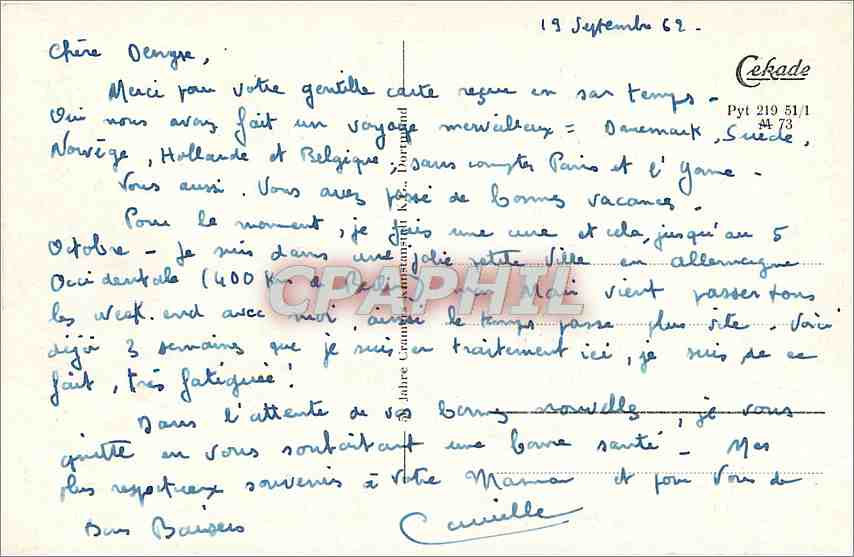 19 Septembre 62 -
Chère Denyse,
Cekade
Merci pour votre gentille carte reçue en son temps -
Pyt 219 51/1
A4 73
Oui nous avons fait un voyage merveilleux = Danemark, Suède,
Norvège, Hollande et Belgique, sans compter Paris et l'Yonne -
Vous aussi. Vous avez passé de bonnes vacances -
Pour le moment, je fais une cure et cela, jusqu'au 5
Octobre - Je suis dans une jolie petite ville en Allemagne
Occidentale (400 Kms de Berlin) mon Mari vient passer tous
les week-end avec moi, ainsi le temps passe plus vite - Voici
déjà 3 semaines que je suis en traitement ici, je suis de ce
fait, très fatiguée!
Dans l'attente de vos bonnes nouvelles, je vous
quitte en vous souhaitant une bonne santé - Mes
plus respectueux souvenirs à votre Maman et pour Vous de
Bons Baisers
Camille
Jahre Cramers Kunstanstalt K.G., Dortmund
CPAPHIL